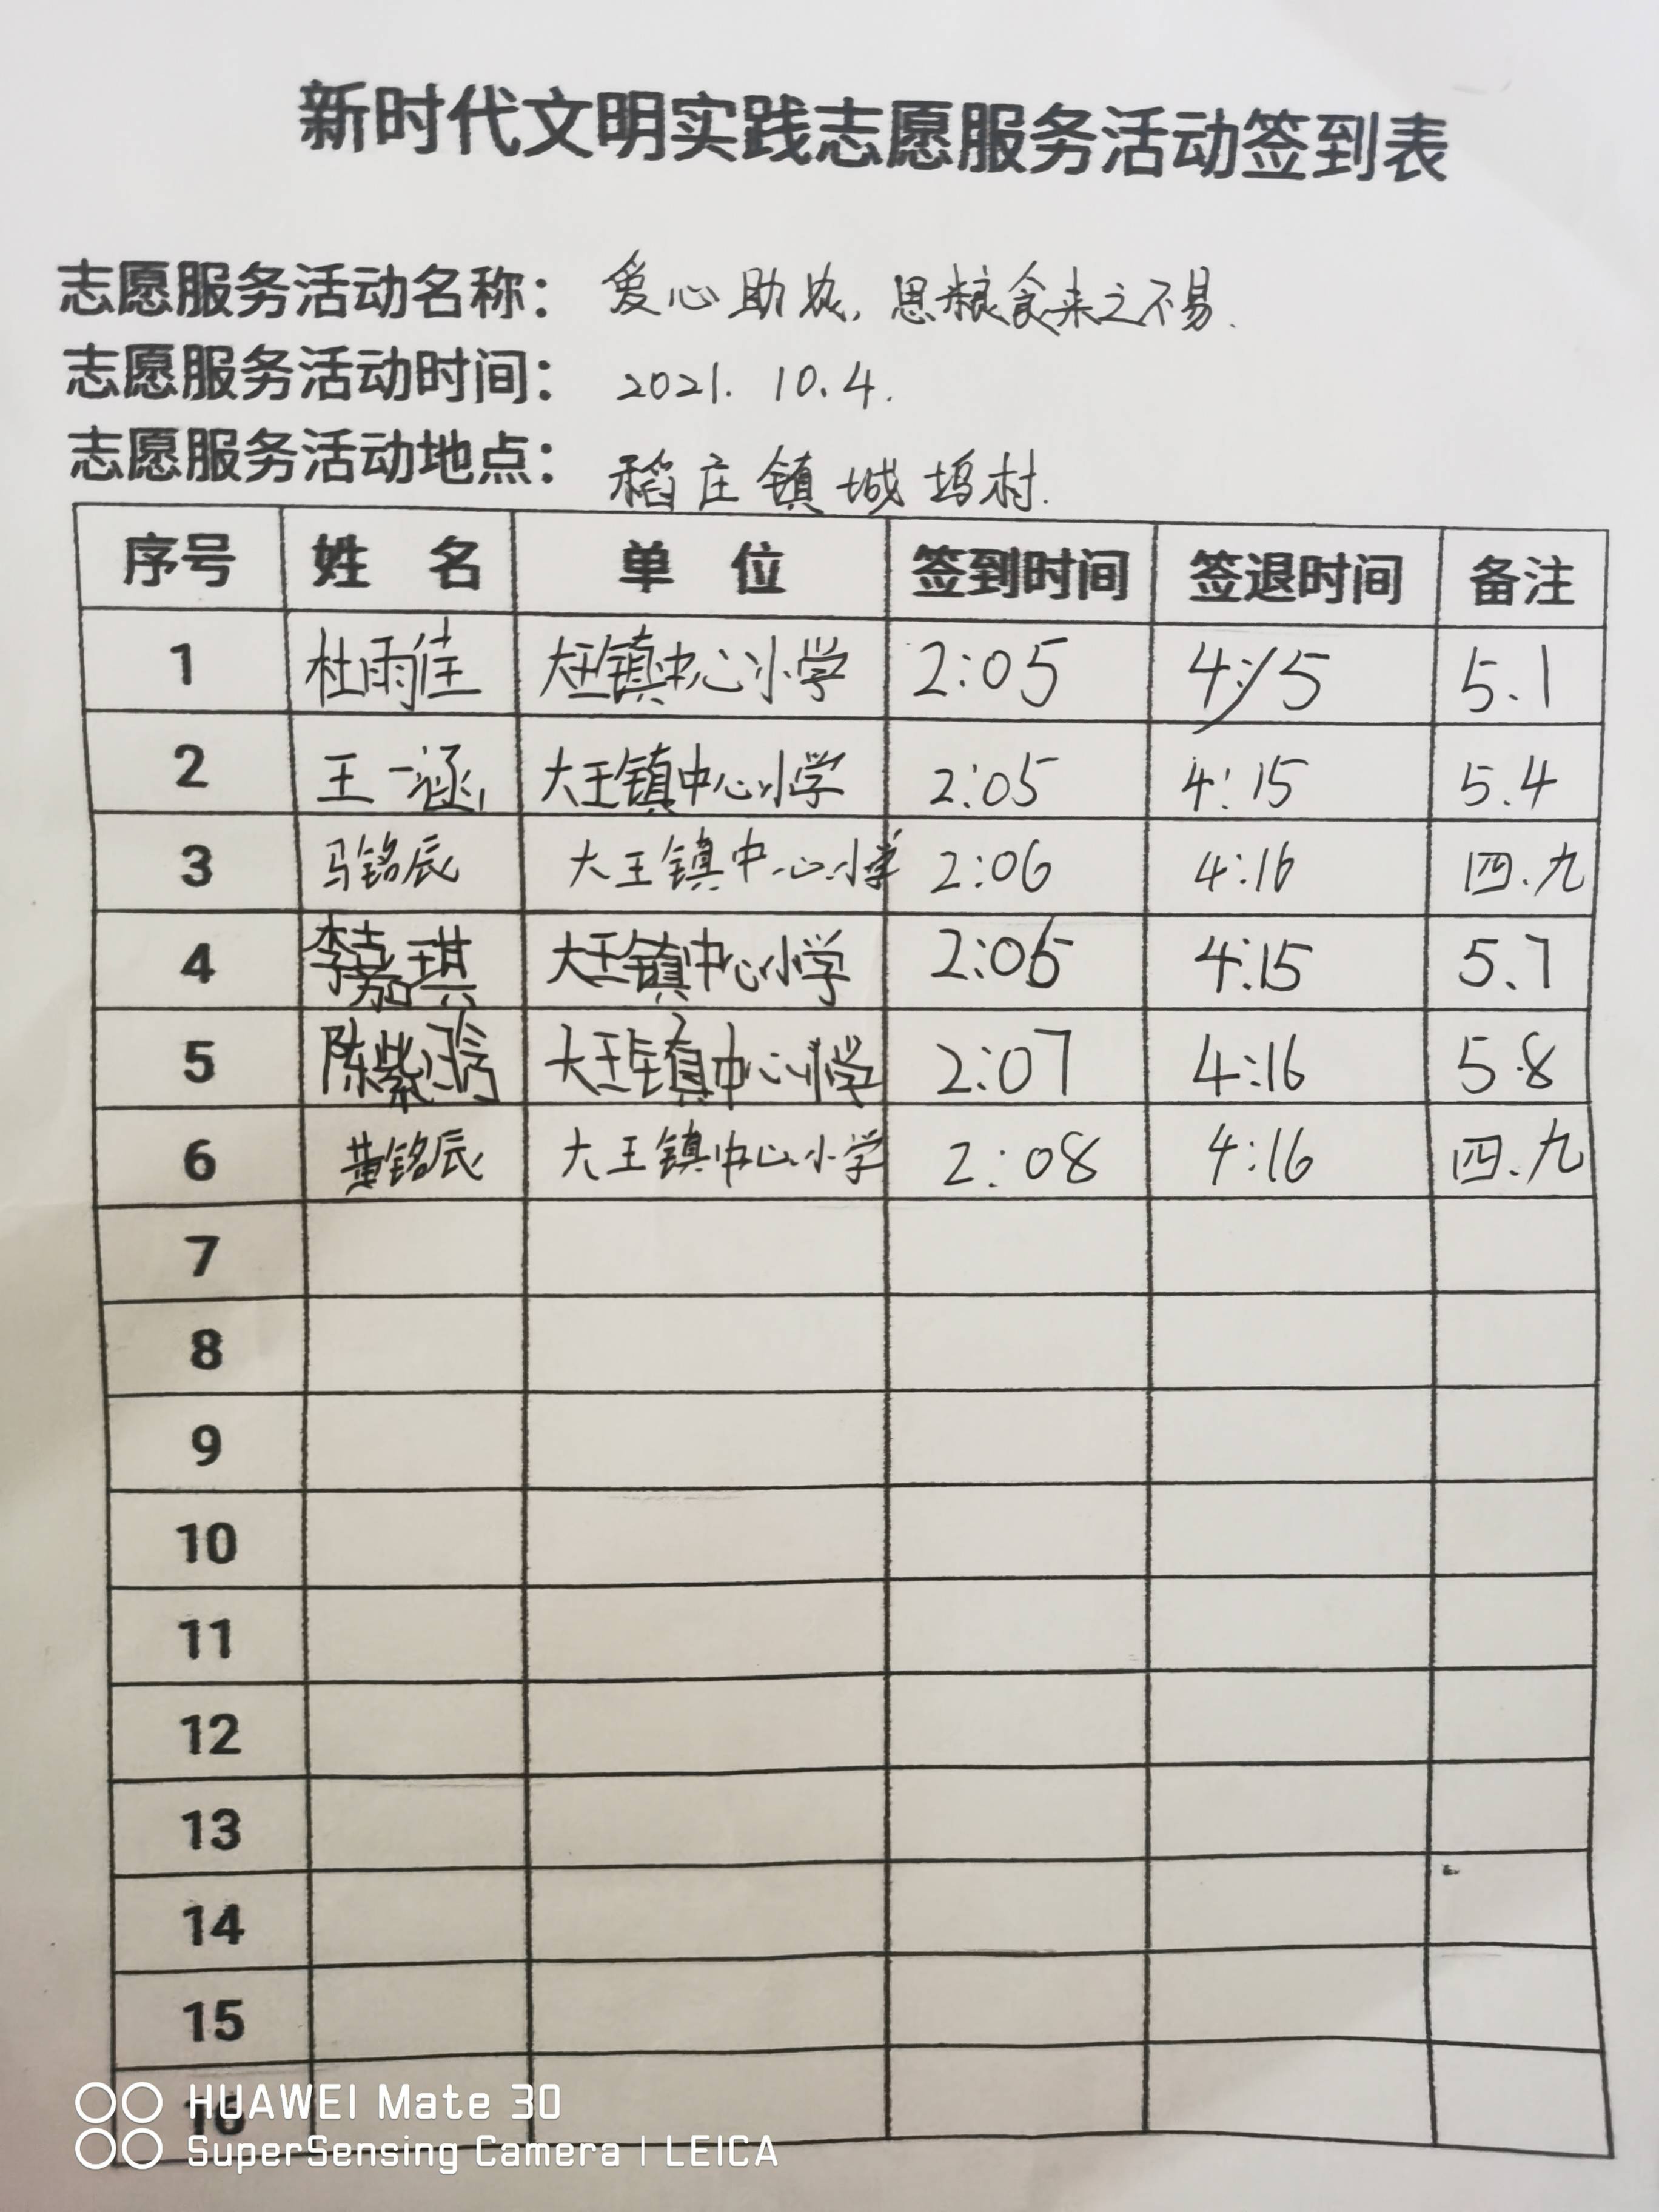 新时代文明实践志愿服务活动签到表
志愿服务活动名称：爱心助农，思粮食来之不易.
志愿服务活动时间：2021. 10.4.
志愿服务活动地点：稻庄镇城坞村.
序号 姓 名 单 位 签到时间 签退时间 备注
1 杜雨佳 大王镇中心小学 2:05 4:15 5.1
2 王一涵 大王镇中心小学 2:05 4:15 5.4
3 马铭辰 大王镇中心小学 2:06 4:16 四.九
4 李嘉琪 大王镇中心小学 4:15 5.7
5 陈紫 大王镇中心小学 2:07 4:16 5.8
6 黄铭辰 大王镇中心小学 2:08 4:16 四.九
7
8
9
10
11
12
13
14
15
16
HUAWEI Mate 30
SuperSensing Camera | LEICA